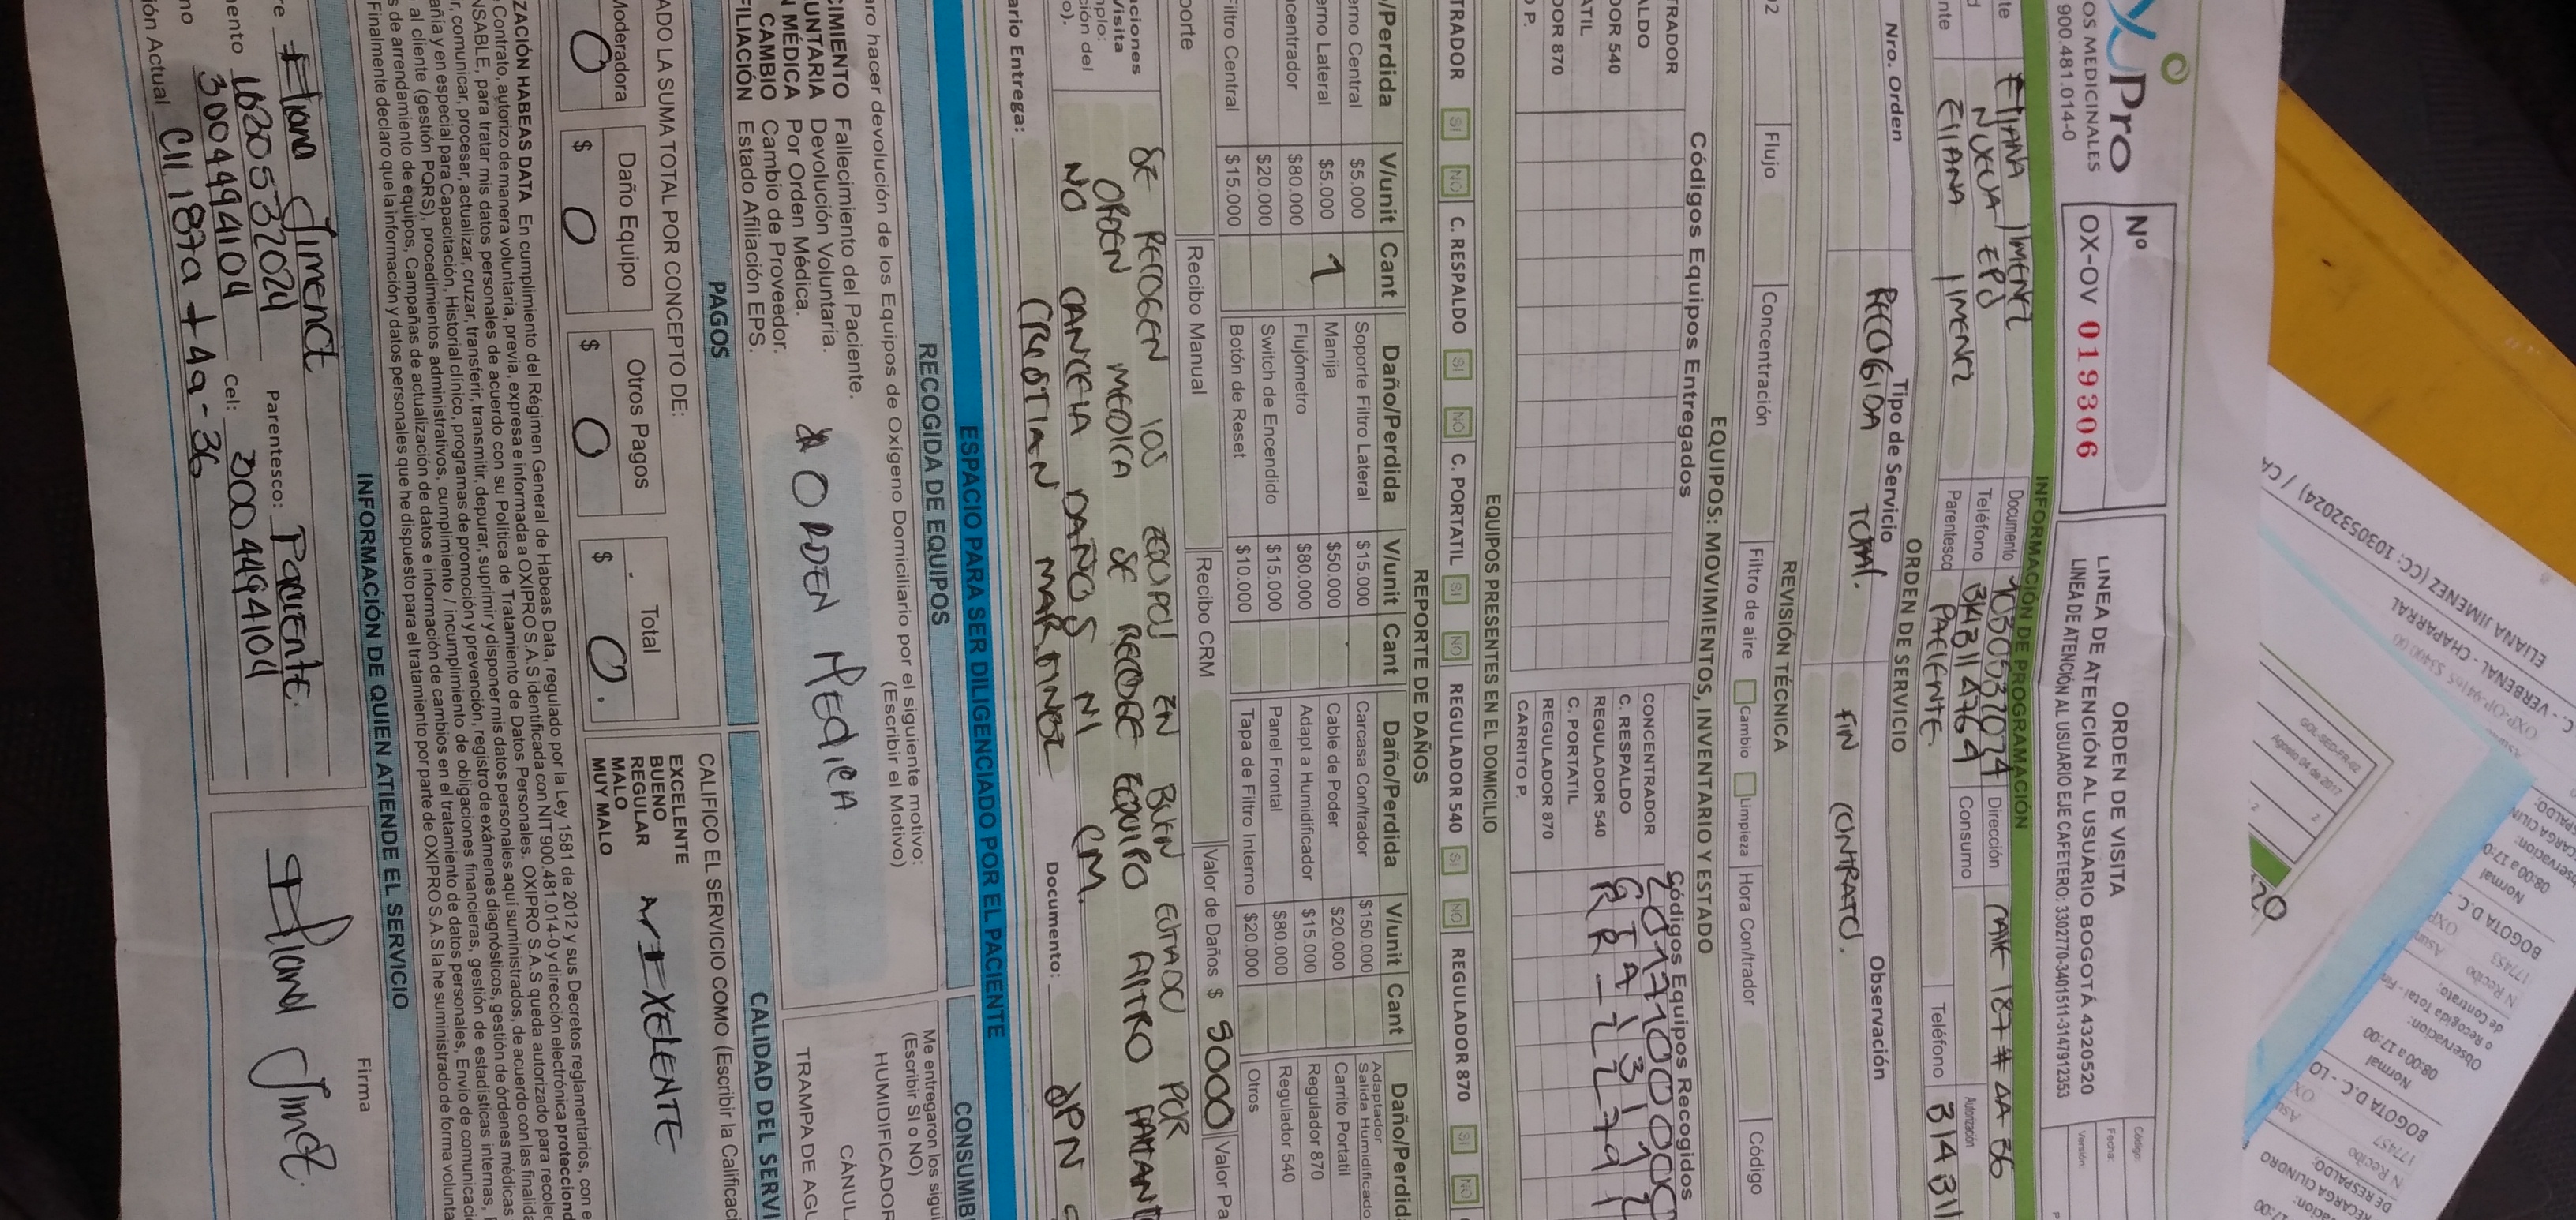 Pro
OS MEDICINALES
900.481.014-0
Nº
OX-OV 019306
ORDEN DE VISITA
LINEA DE ATENCIÓN AL USUARIO BOGOTÁ 4320520
LINEA DE ATENCIÓN AL USUARIO EJE CAFETERO: 3302770-3401511-3147912353
Código:
Fecha:
Versión:
INFORMACIÓN DE PROGRAMACIÓN
te ELIANA JIMENEZ Documento 1030532024 Dirección CALLE 187 # 4A 36
d NUEVA EPS Teléfono 3143114764 Consumo Autorización
nte ElIANA JIMENEZ Parentesco PACIENTE Teléfono 314311
ORDEN DE SERVICIO
Nro. Orden Tipo de Servicio Observación
RECOGIDA TOTAL. FIN CONTRATO.
REVISIÓN TÉCNICA
02 Flujo Concentración Filtro de aire Cambio Limpieza Hora Con/trador Código
EQUIPOS: MOVIMIENTOS, INVENTARIO Y ESTADO
Códigos Equipos Entregados Códigos Equipos Recogidos
TRADOR CONCENTRADOR
ALDO C. RESPALDO
DOR 540 REGULADOR 540 RR-2279
ATIL C. PORTATIL
DOR 870 REGULADOR 870
O P. CARRITO P.
EQUIPOS PRESENTES EN EL DOMICILIO
TRADOR SI NO C. RESPALDO SI NO C. PORTATIL SI NO REGULADOR 540 SI NO REGULADOR 870 SI NO
REPORTE DE DAÑOS
/Perdida V/unit Cant Daño/Perdida V/unit Cant Daño/Perdida V/unit Cant Daño/Perdid
erno Central $5.000 Soporte Filtro Lateral $15.000 Carcasa Con/trador $150.000 Adaptador Salida Humidificado
erno Lateral $5.000 1 Manija $50.000 Cable de Poder $20.000 Carrito Portatil
centrador $80.000 Flujómetro $80.000 Adapt a Humidificador $15.000 Regulador 870
$20.000 Switch de Encendido $15.000 Panel Frontal $80.000 Regulador 540
Filtro Central $15.000 Botón de Reset $10.000 Tapa de Filtro Interno $20.000 Otros
porte Recibo Manual Recibo CRM Valor de Daños $ 5000 Valor Pa
ciones
Visita
mplo:
ción del
o).
SE RECOGEN los EQUIPOS EN BUEN ESTADO POR
ORDEN MEDICA SE RECOGE EQUIPO FILTRO FALTANT
NO CANCELA DAÑOS NI CM.
ario Entrega: CRISTIAN MARTINEZ Documento: JPN
ESPACIO PARA SER DILIGENCIADO POR EL PACIENTE
RECOGIDA DE EQUIPOS
CONSUMIB
aro hacer devolución de los Equipos de Oxigeno Domiciliario por el siguiente motivo:
(Escribir el Motivo)
Me entregaron los sigui
(Escribir SI o NO)
CIMIENTO Fallecimiento del Paciente.
UNTARIA Devolución Voluntaria.
N MÉDICA Por Orden Médica.
CAMBIO Cambio de Proveedor.
FILIACIÓN Estado Afiliación EPS.
* ORDEN MEDICA
HUMIDIFICADOR
CÁNUL
TRAMPA DE AGU
PAGOS
CALIDAD DEL SERVI
ADO LA SUMA TOTAL POR CONCEPTO DE:
CALIFICO EL SERVICIO COMO (Escribir la Calificaci
Moderadora Daño Equipo Otros Pagos Total
0 $ 0 $ 0 $ 0.
EXCELENTE
BUENO
REGULAR
MALO
MUY MALO
EXELENTE
ZACIÓN HABEAS DATA En cumplimiento del Régimen General de Habeas Data, regulado por la Ley 1581 de 2012 y sus Decretos reglamentarios, con e
Contrato, autorizo de manera voluntaria, previa, expresa e informada a OXIPRO S.A.S identificada con NIT 900.481.014-0 y dirección electrónica protecciond
NSABLE, para tratar mis datos personales de acuerdo con su Política de Tratamiento de Datos Personales. OXIPRO S.A.S queda autorizado para recolec
r, comunicar, procesar, actualizar, cruzar, transferir, transmitir, depurar, suprimir y disponer mis datos personales aquí suministrados, de acuerdo con las finalida
aña y en especial para Capacitación, Historial clínico, programas de promoción y prevención, registro de exámenes diagnósticos, gestión de órdenes médicas
al cliente (gestión PQRS), procedimientos administrativos, cumplimiento / incumplimiento de obligaciones financieras, gestión de estadísticas internas,
s de arrendamiento de equipos, Campañas de actualización de datos e información de cambios en el tratamiento de datos personales, Envío de comunicaci
Finalmente declaro que la información y datos personales que he dispuesto para el tratamiento por parte de OXIPRO S.A.S la he suministrado de forma volunta
INFORMACIÓN DE QUIEN ATIENDE EL SERVICIO
re Eliana Jimenez Parentesco: Paciente.
mento 1030532024 cel: 3004494104
no 3004494104
ión Actual Cll 187a # 4a-36
Firma
Eliana Jimenez
ELIANA JIMENEZ (CC: 1030532024) / CA
C. - VERBENAL - CHAPARRAL
GOL-SED-FR-02
Agosto 04 de 2017
2
BOGOTA D.C.
08:00 a 17:0
Normal
177453
N Recibo
o Recogida Total - Fin
de Contrato;
Observacion:
08:00 a 17:00
Normal
BOGOTA D.C. - LO
177457
N Recibo
RECARGA CILINDRO
DE RESPALDO;
17:00